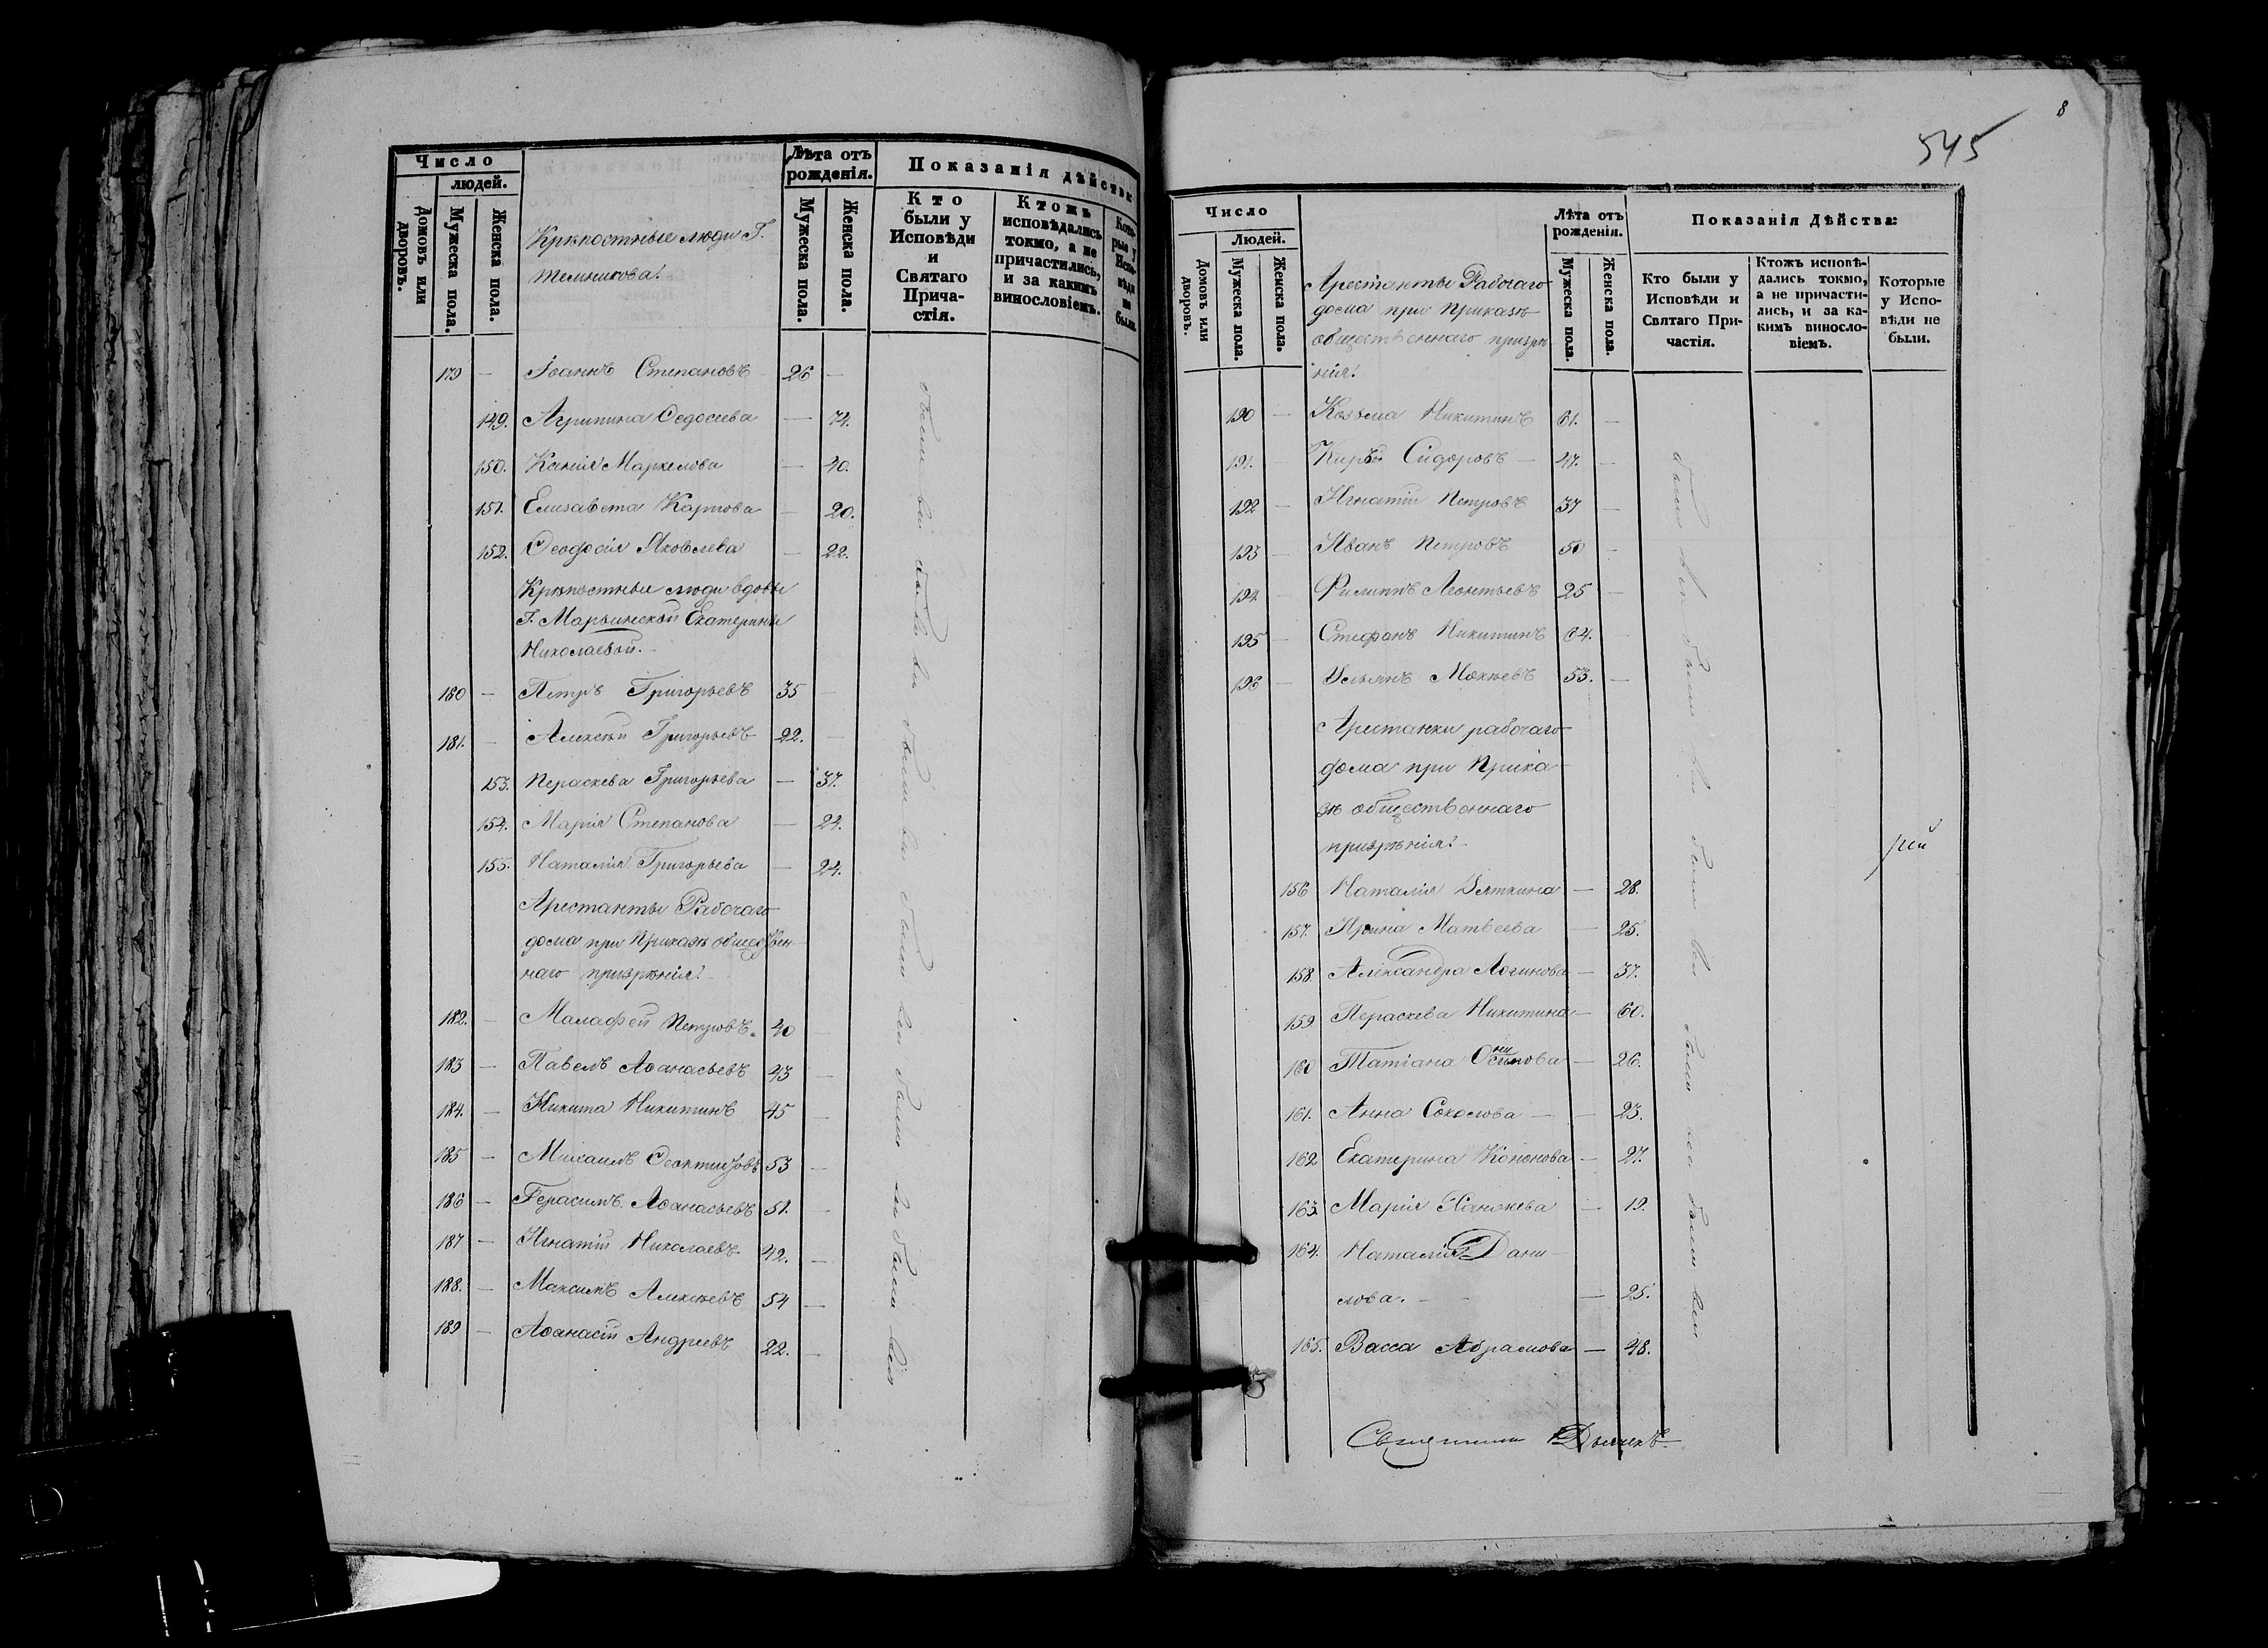 Число
людей.
Домовъ или дворовъ.
Мужеска пола.
Женска пола.
Крѣпостные люди Г.
Темникова.
Лѣта отъ рожденія.
Мужеска пола.
Женска пола.
Показанія дѣйства:
Кто были у Исповѣди и Святаго Причастія.
Ктожъ исповѣдались токмо, а не причастились, и за какимъ винословіемъ.
Которые у Исповѣди не были.
179 — Іоаннъ Степановъ 26 —
149. Агрипина Ѳедосеева — 74.
150. Ксенія Маркелова — 40.
151. Елизавета Карпова — 20.
152. Ѳеодосія Яковлева — 22.
Крѣпостные люди вдовы
Г. Марьинской Екатерины
Николаевой.
180 — Петръ Григорьевъ 35 —
181. — Алексѣй Григорьевъ 22. —
153. Пераскева Григорьева — 37.
154. Марія Степанова — 24.
155. Наталія Григорьева — 24.
Арестанты Рабочаго
дома при Приказѣ обществен
наго призрѣнія.
182. — Малафей Петровъ. 40 —
183 — Павелъ Аѳанасьевъ 43 —
184. — Никита Никитинъ 45 —
185 — Михаилъ Ѳеоктистовъ 53 —
186 — Герасимъ Аѳанасьевъ 51. —
187 — Игнатій Николаевъ 42. —
188. — Максимъ Алексѣевъ 54 —
189 — Аѳанасій Андреевъ 22. —
были вси были вси были вси были вси были вси были вси
8
545
Число
Людей.
Домовъ или дворовъ.
Мужеска пола.
Женска пола.
Арестанты Рабочаго
дома при Приказѣ
общественнаго призрѣ
нія.
Лѣта отъ рожденія.
Мужеска пола.
Женска пола.
Показанія Дѣйства:
Кто были у Исповѣди и Святаго Причастія.
Ктожъ исповѣдались токмо, а не причастились, и за какимъ винословіемъ.
Которые у Исповѣди не были.
190 — Козьма Никитинъ 61. —
191. Сидоровъ — 47. —
192 — Игнатій Петровъ 37 —
193 — Иванъ Петровъ 50 —
194 — Филиппъ Леонтьевъ 25 —
195 — Стефанъ Никитинъ 64. —
196 — Ульянъ Мокѣевъ 53. —
Арестанки рабочаго
дома при Прика
зѣ общественнаго
призрѣнія.
156 Наталія Уляткина — 28.
157. Ирина Матвеева — 25.
158. Александра Логинова — 37.
159 Пераскева Никитина — 60.
160 Татіана — 26.
161. Анна Соколова — — 23.
162 Екатерина Кононова — 27.
163. Марія — 19.
164. Наталія Дани
лова. — — 25.
165. Васса Абрамова — 48.
были вси были вси были вси были вси были вси
рей
Священникъ